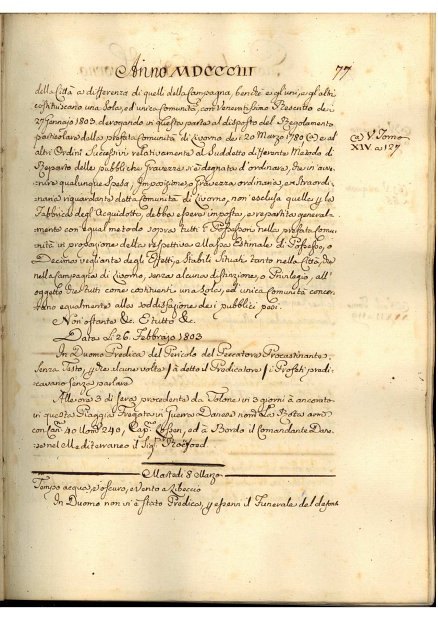 Anno MDCCCIII
77
della Città a differenza di quelli della Campagna, benchè e gl'uni, e gl'altri
costituiscano una sola, ed unica Comunità, con Veneratissimo Rescritto de'
27 Gennajo 1803. derogando in questa parte al disposto del Regolamento
particolare della prefata Comunità di Livorno de' 20 Marzo 1780 (a) e ad
altri Ordini Successivi relativamente al Suddetto differente Metodo di
Reparto delle pubbliche Gravezze si è degnata d'ordinare, che in avve-
nire qualunque Spesa, Imposizione, o Gravezza ordinaria, e straordi-
naria riguardante detta Comunità di Livorno, non esclusa quella p. la
Fabbrica degl'Acquidotti, debba essere imposta, e repartita general-
mente con egual metodo sopra tutti i Possessori nella prefata Comu-
nità in proporzione della respettiva Massa Estimale di Possesso, o
Decimo vegliante degl'Effetti, e Stabili Situati tanto nella Città, che
nella Campagna di Livorno, senza alcuna distinzione, o Privilegio, all'
oggetto che tutti come costituenti una Sola, ed unica Comunità concor-
rano egualmente alla soddisfazione dei pubblici pesi.
Non ostante &c. E tutto &c.
Data Li 26. Febbrajo 1803
(a) V. Tomo
XIV. a 127
In Duomo Predica del Pericolo del Peccatore Procastinante,
Senza Testo, alcune volte à detto il Predicatore i Profeti predi-
cavano senza parlare
Alle ore 3 di sera procedente da Tolone in 3 giorni à ancorato
in questa Piaggia Fregata in Guerra Danese nom. La Rota arm.
con Can. 40 Uom. 240, Cap. ed à Bordo il Comandante Dane-
se nel Mediterraneo il Sig.
Martedi 8 Marzo
Tempo acqua, e oscuro, e Vento a Libeccio
In Duomo non vi è stato Predica, p. esservi il Funerale del defunto